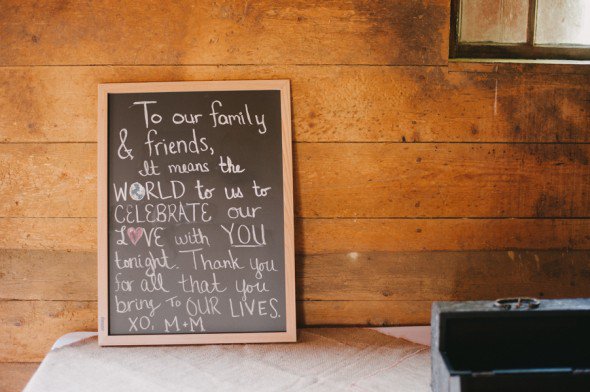 To our family
& friends,
It means the
WORLD to us to
CELEBRATE our
LOVE with YOU
tonight. Thank you
for all that you
bring TO OUR LIVES.
XO, M+M